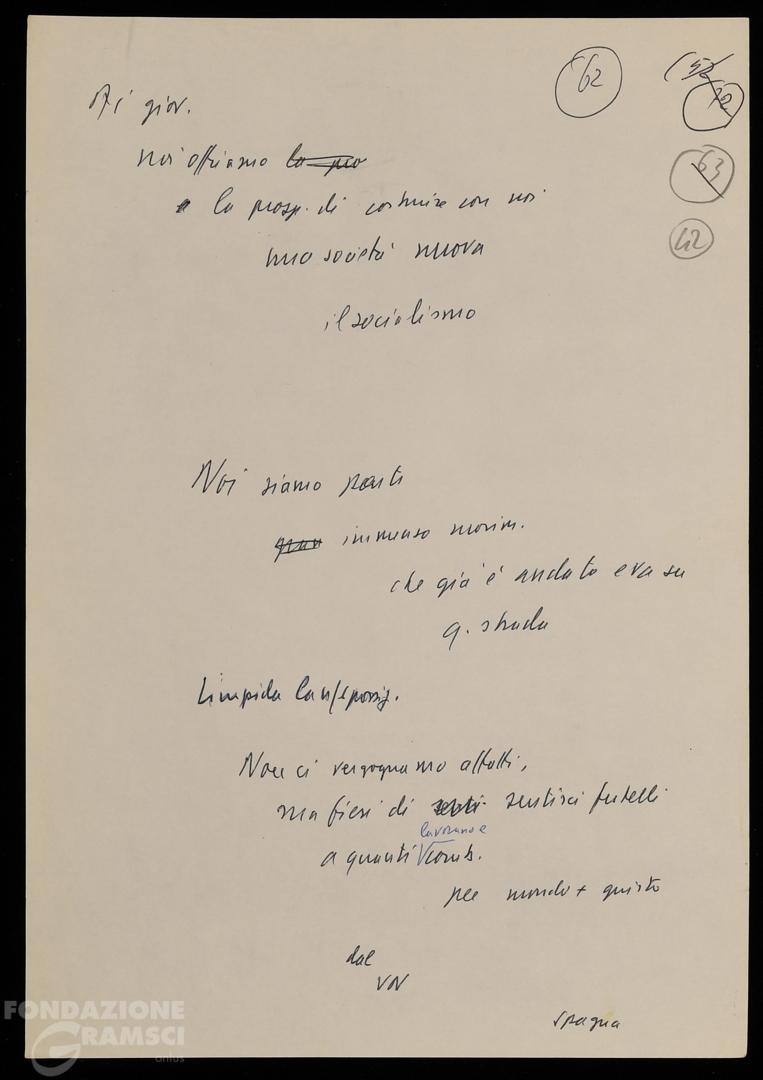 62
Ai giov.
63
noi offriamo la pro
42
la prosp. di costruire con noi
una società nuova
il socialismo
Noi siamo parte
gran immenso movim.
che già è andato e va su
q. strada
Limpida la n/ posiz.
Non ci vergognamo affatti,
ma fieri di sentirci fratelli
lavorano e
a quanti V comb.
per mondo + giusto
dal
VN
Spagna
FONDAZIONE
GRAMSCI
onlus